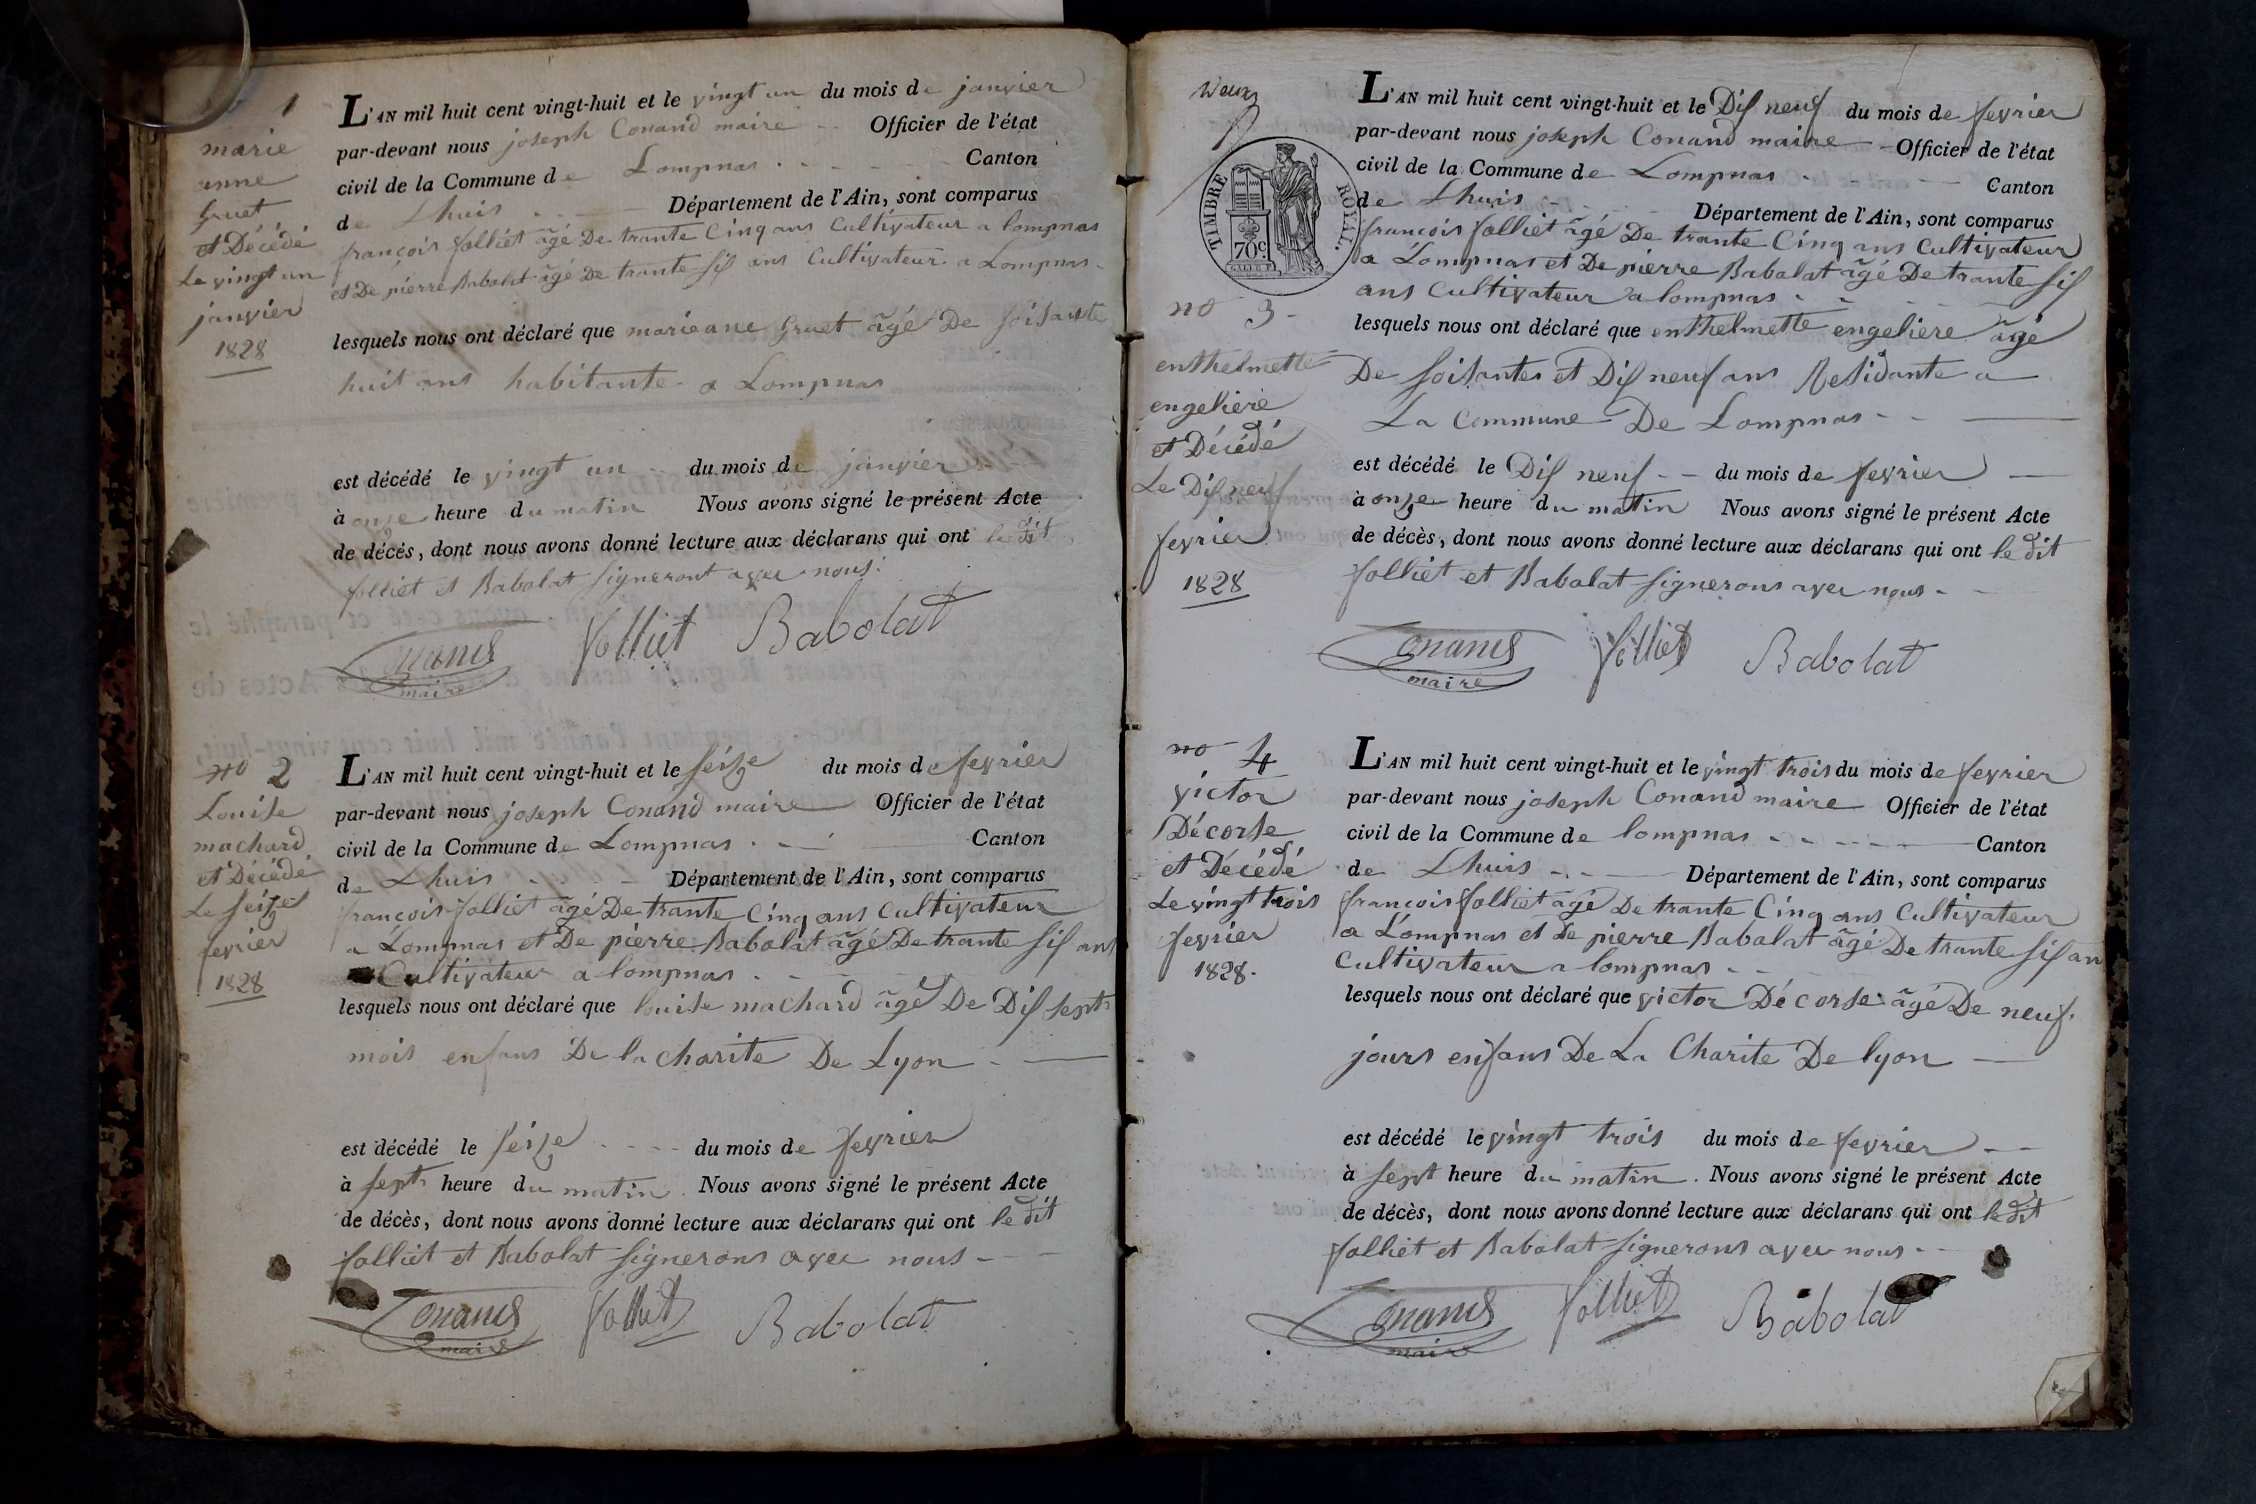 no 1
marie
anne
Gruet
et Décédé
Le vingt un
janvier
1828
L'AN mil huit cent vingt-huit et le vingt un du mois de janvier
par-devant nous joseph Conand maire Officier de l'état
civil de la Commune de Lompnas Canton
de Lhuis Département de l'Ain, sont comparus
françois folliet âgé De trante Cinq ans Cultivateur a lompnas
et De pierre Babolat âgé De trante sis ans Cultivateur a Lompnas
lesquels nous ont déclaré que marieane Gruet âgé De soisante
huit ans habitante a Lompnas
est décédé le vingt un du mois de janvier
à onze heure du matin Nous avons signé le présent Acte
de décès, dont nous avons donné lecture aux déclarans qui ont le dit
folliet et Babolat signeront avec nous.
Conand Folliet Babolat
maire
no 2
Louise
machard
et Décédé
Le seize
fevrier
1828
L'AN mil huit cent vingt-huit et le seize du mois de fevrier
par-devant nous joseph Conand maire Officier de l'état
civil de la Commune de Lompnas Canton
de Lhuis Département de l'Ain, sont comparus
françois folliet âgé De trante Cinq ans Cultivateur
a Lompnas et De pierre Babolat âgé De trante sis ans
Cultivateur a lompnas
lesquels nous ont déclaré que louise machard âgé De Dis sept
mois enfans De la charite De Lyon
est décédé le seize du mois de fevrier
à sept heure du matin Nous avons signé le présent Acte
de décès, dont nous avons donné lecture aux déclarans qui ont le dit
folliet et Babolat signerons avec nous
Conand Folliet Babolat
maire
TIMBRE ROYAL.
70c.
no 3
enthelmette
engeliere
et Décédé
Le Dis neuf
fevrier
1828
L'AN mil huit cent vingt-huit et le Dis neuf du mois de fevrier
par-devant nous joseph Conand maire Officier de l'état
civil de la Commune de Lompnas Canton
de Lhuis Département de l'Ain, sont comparus
francois folliet âgé De trante Cinq ans Cultivateur
a Lompnas et De pierre Babalat âgé De trante sis
ans Cultivateur a lompnas
lesquels nous ont déclaré que enthelmette engeliere âgé
De soisantes et Dis neuf ans Residante a
La commune De Lompnas
est décédé le Dis neuf du mois de fevrier
à onze heure du matin Nous avons signé le présent Acte
de décès, dont nous avons donné lecture aux déclarans qui ont le dit
folliet et Babalat signerons avec nous
Conand Folliet Babolat
maire
no 4
victor
Décorse
et Décédé
Le vingt trois
fevrier
1828.
L'AN mil huit cent vingt-huit et le vingt trois du mois de fevrier
par-devant nous joseph Conand maire Officier de l'état
civil de la Commune de lompnas Canton
de Lhuis Département de l'Ain, sont comparus
francois folliet âgé De trante Cinq ans Cultivateur
a Lompnas et De pierre Babalat âgé De trante sis an
Cultivateur a lompnas
lesquels nous ont déclaré que victor Décorse âgé De neuf
jours enfans De La Charite De lyon
est décédé le vingt trois du mois de fevrier
à sept heure du matin. Nous avons signé le présent Acte
de décès, dont nous avons donné lecture aux déclarans qui ont le dit
folliet et Babalat signerons avec nous
Conand Folliet Babolat
maire